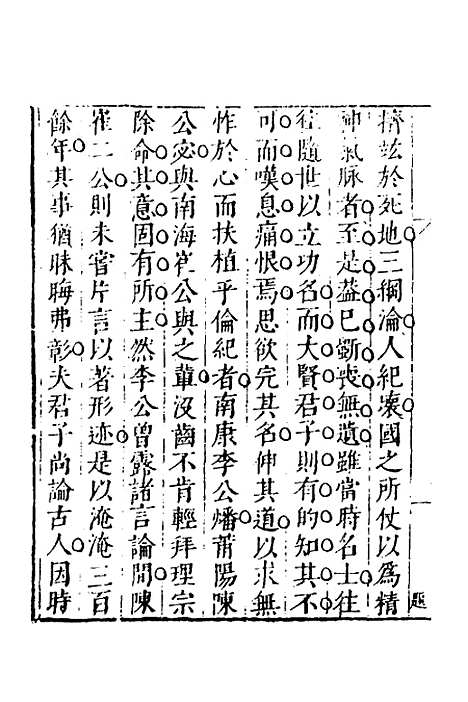 擠竑於死地三綱淪人紀壞國之所仗以爲精
神氣脉者至是葢已斵喪無遺雖當時名士往
往隨世以立功名而大賢君子則有的知其不
可而嘆息痛恨焉思欲完其名伸其道以求無
怍於心而扶植乎倫紀者南康李公燔莆陽陳
公宓與南海崔公與之軰沒齒不肯輕拜理宗
除命其意固有所主然李公曾露諸言論間陳
崔二公則未嘗片言以著形迹是以淹淹三百
餘年其事猶昧晦弗彰夫君子尚論古人因時